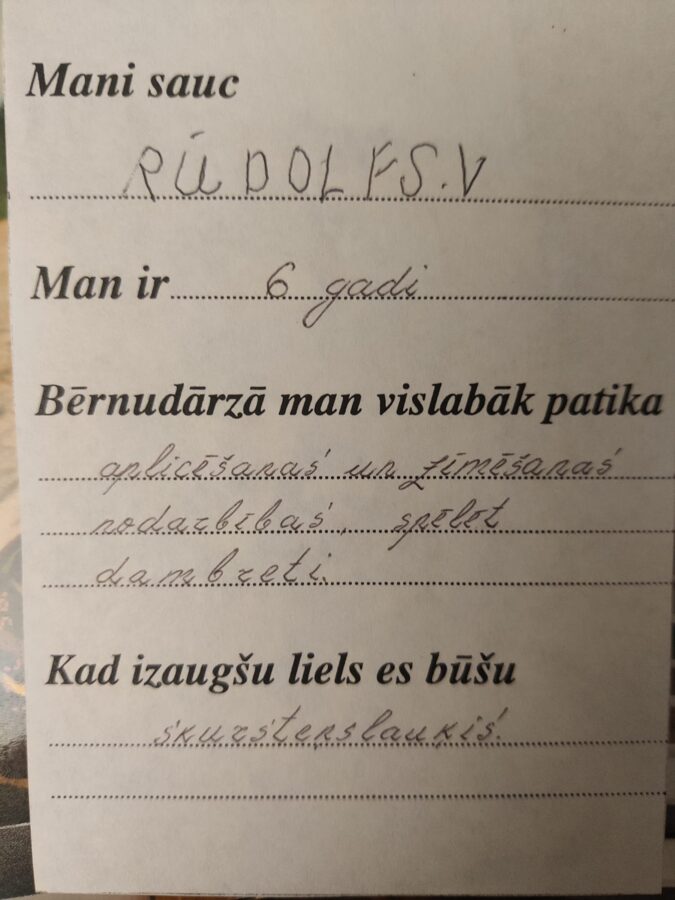 Mani sauc
RŪDOLFS.V
Man ir 6 gadi
Bērnudārzā man vislabāk patika
aplicēšanas un zīmēšanas
nodarbības, spēlēt
dambreti.
Kad izaugšu liels es būšu
skursteņslauķis.